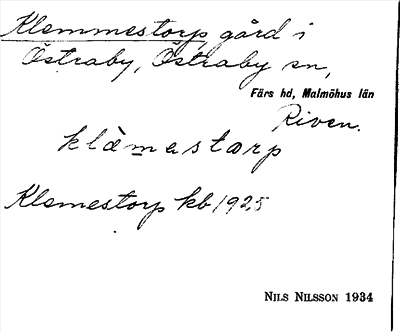 Klemmestorp gård i
Östraby, Östraby sn,
Färs hd, Malmöhus län
Riven.
klèmestarp
Klemestorp kb 1925
NILS NILSSON 1934